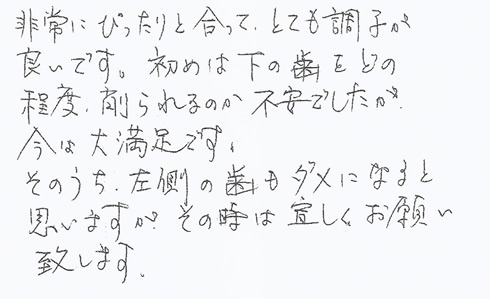 非常にぴったりと合って、とても調子が
良いです。初めは下の歯をどの
程度、削られるのか不安でしたが、
今は大満足です。
そのうち、左側の歯もダメになると
思いますが、その時は宜しくお願い
致します。